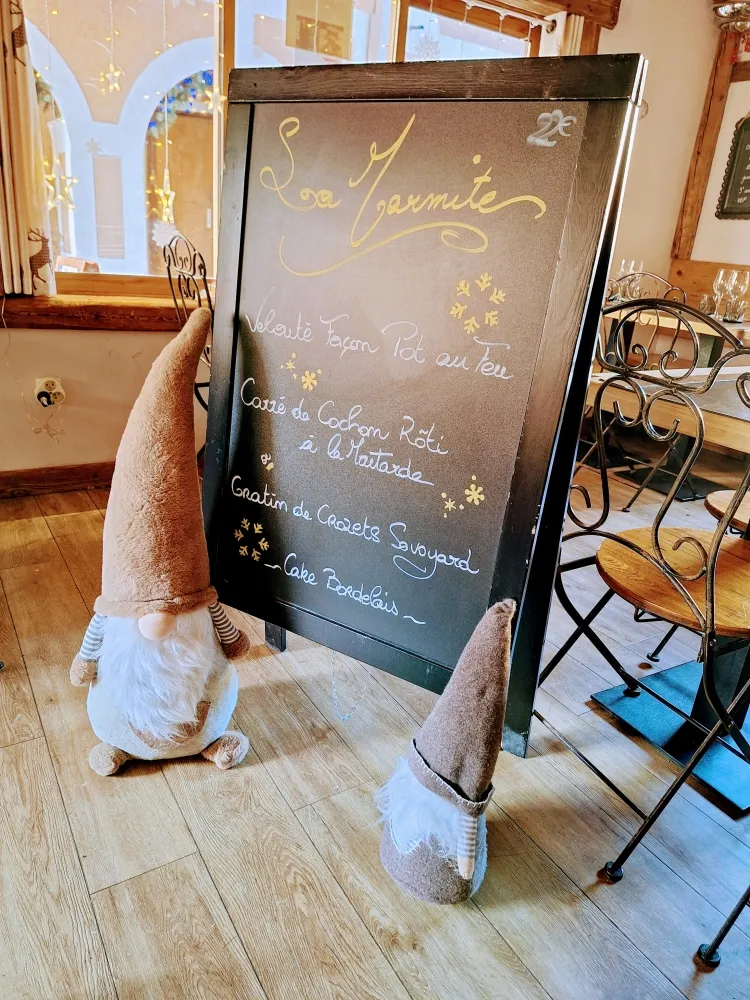 22€
La Marmite
Velouté Façon Pot au Feu
Carré de Cochon Rôti
à la Moutarde
&
Gratin de Crozets Savoyard
~ Cake Bordelais ~